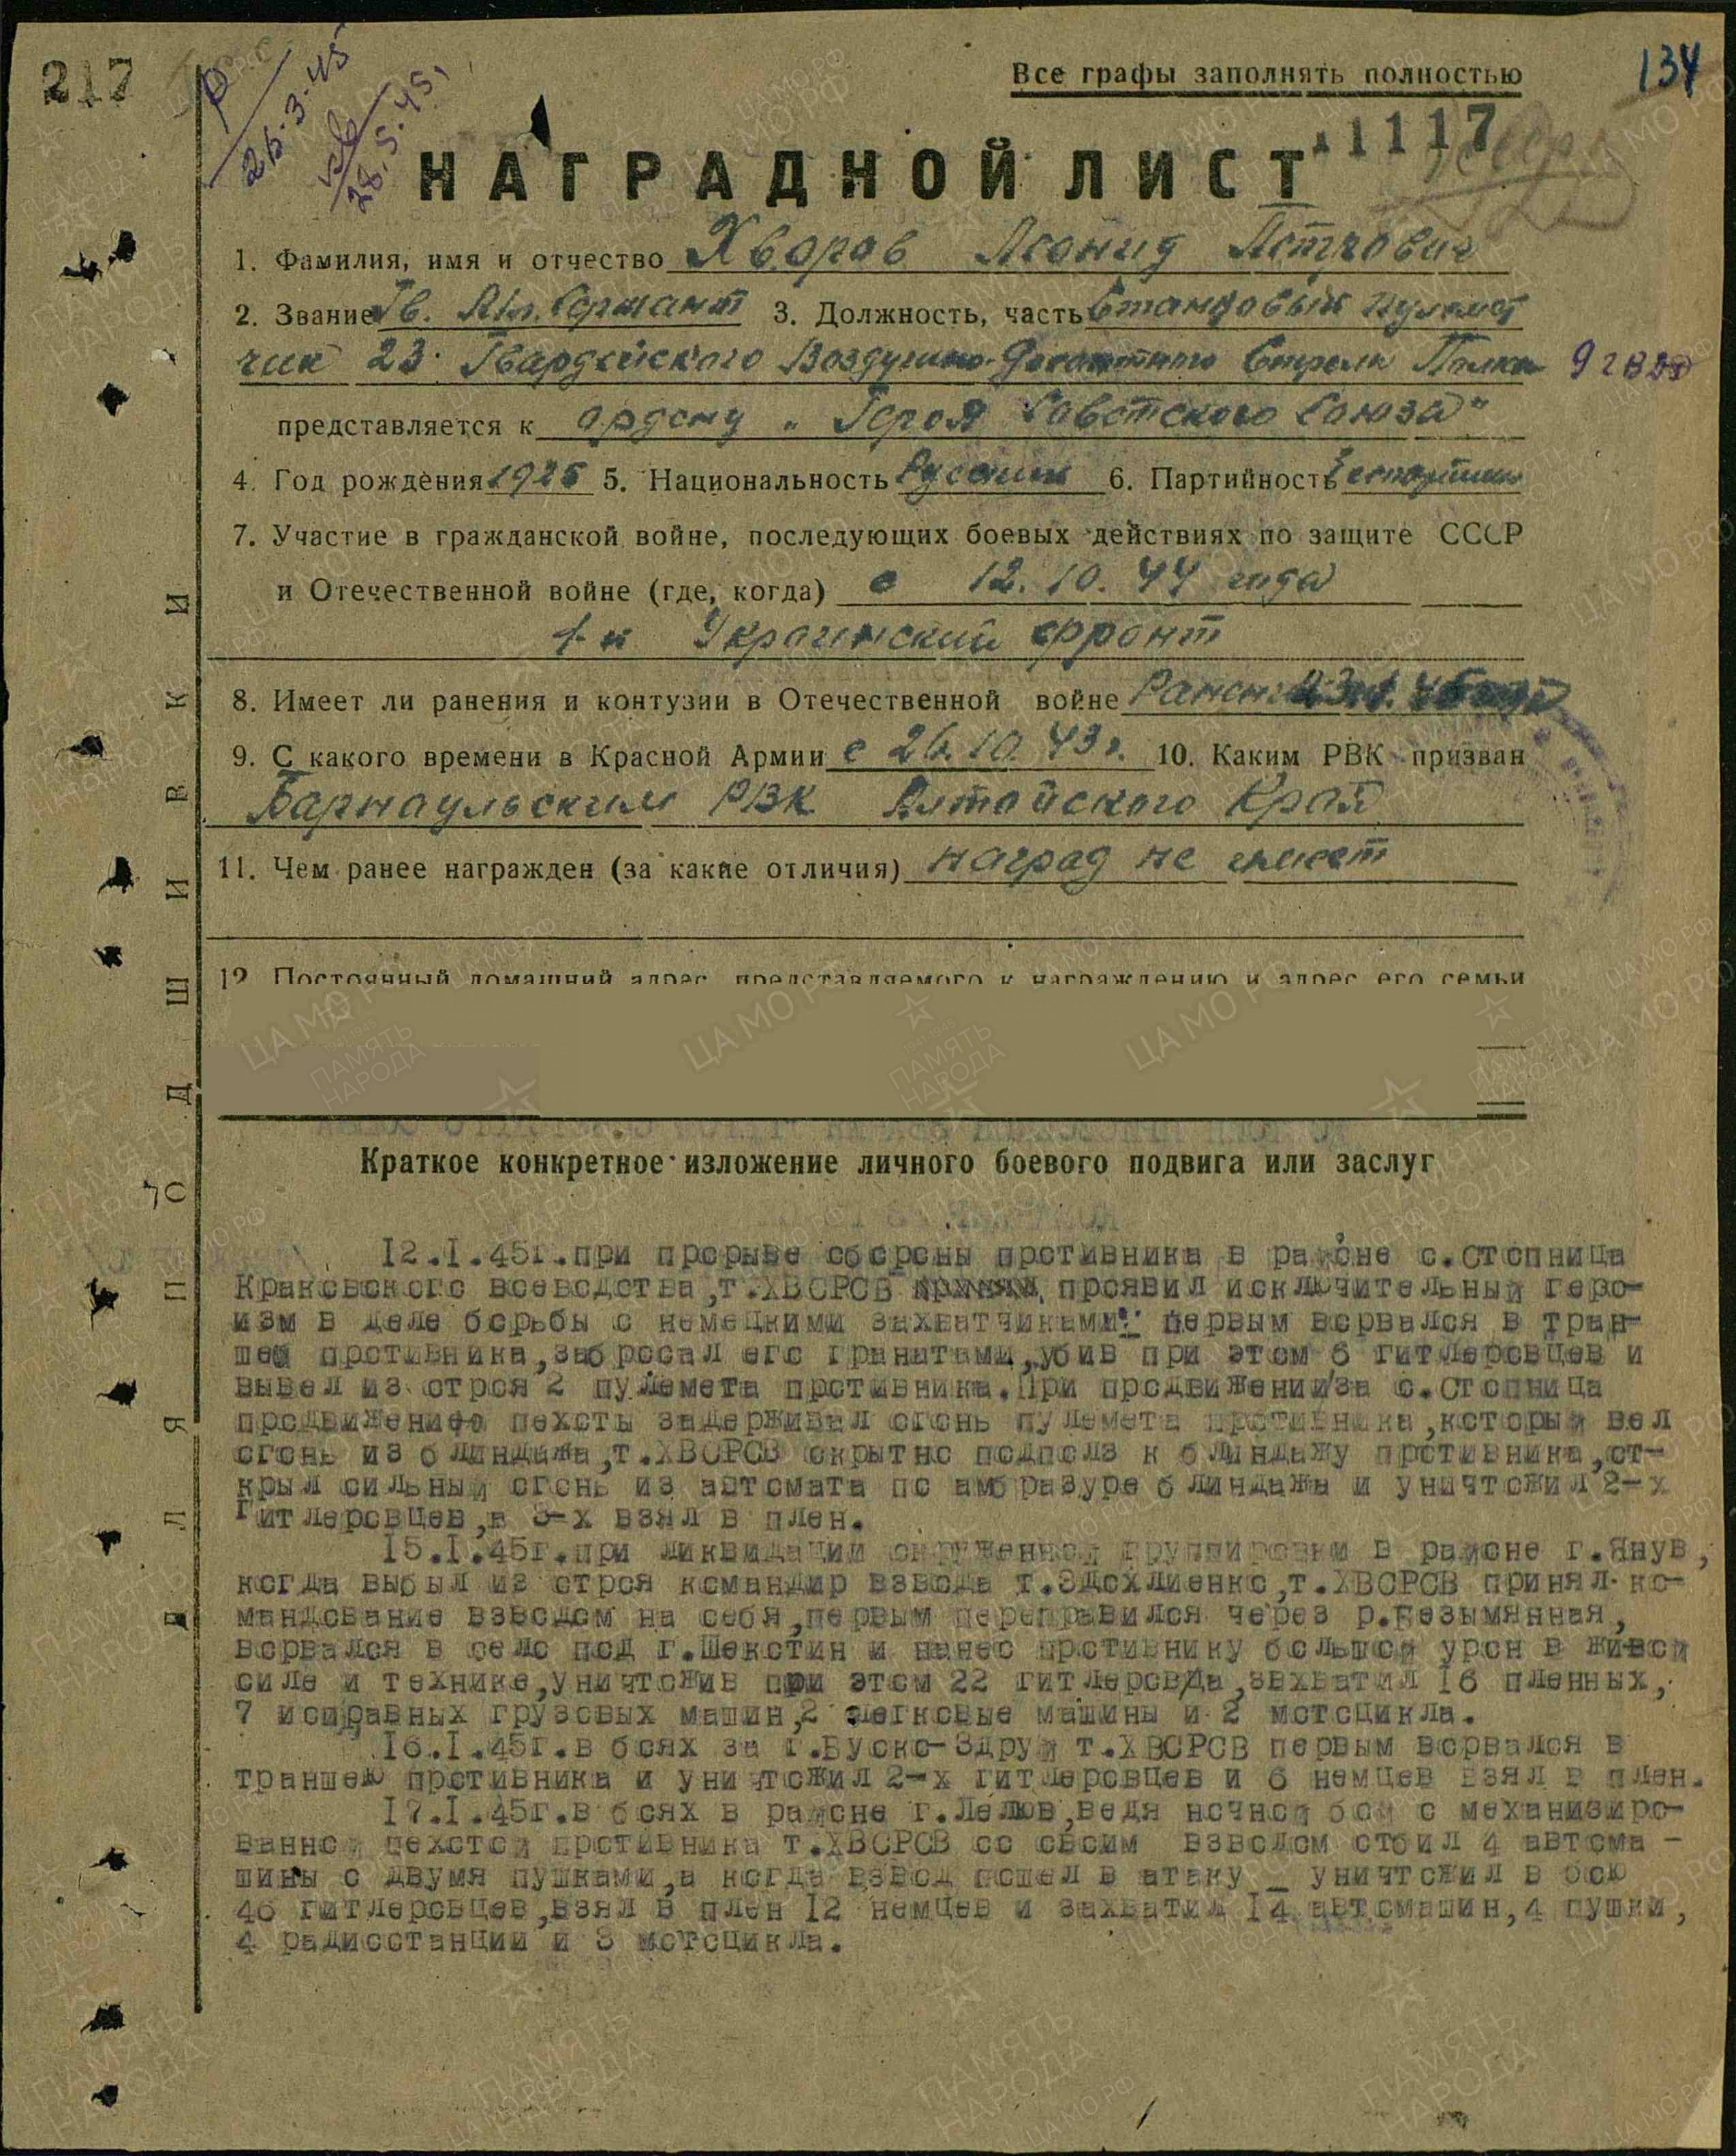 217
26.3.45
28.5.45
Все графы заполнять полностью
134
11117
НАГРАДНОЙ ЛИСТ
1. Фамилия, имя и отчество Хворов Леонид Петрович
2. Звание Гв. Мл. Сержант 3. Должность, часть Станковый пулемет
чик 23 Гвардейского Воздушно-Десантного Стрелк Полка 9 гвдд
представляется к ордену „Героя Советского Союза"
4. Год рождения 1925 5. Национальность Русский 6. Партийность
7. Участие в гражданской войне, последующих боевых действиях по защите СССР
и Отечественной войне (где, когда) с 12.10.44 года
1-й Украинский фронт
8. Имеет ли ранения и контузии в Отечественной войне Ранен 23.1.45
9. С какого времени в Красной Армии с 26.10.43г. 10. Каким РВК призван
Барнаульским РВК Алтайского Края
11. Чем ранее награжден (за какие отличия) наград не имеет
12. Постоянный домашний адрес представляемого к награждению и адрес его семьи
ДЛЯ ПОДШИВКИ
Краткое конкретное изложение личного боевого подвига или заслуг
12.I.45г.при прорыве обороны противника в районе с.Стопница
Краковского воеводства,т.ХВОРОВ проявил исключительный геро-
изм в деле борьбы с немецкими захватчиками: первым ворвался в тран-
шеи противника,забросал его гранатами,убив при этом 6 гитлеровцев и
вывел из строя 2 пулемета противника.При продвижении за с.Стопница
продвижению пехоты задерживал огонь пулемета противника,который вел
огонь из блиндажа,т.ХВОРОВ скрытно подполз к блиндажу противника,от-
крыл сильный огонь из автомата по амбразуре блиндажа и уничтожил 2-х
Гитлеровцев,а 3-х взял в плен.
15.I.45г.при ликвидации окруженной группировки в районе г.Янув,
когда выбыл из строя командир взвода т.Здохлиенко,т.ХВОРОВ принял ко-
мандование взводом на себя,первым переправился через р.Безымянная,
ворвался в село под г.Шекстин и нанес противнику большой урон в живой
силе и технике,уничтожив при этом 22 гитлеровца,захватил 16 пленных,
7 исправных грузовых машин,2 легковые машины и 2 мотоцикла.
16.I.45г.в боях за г.Буско-Здруй т.ХВОРОВ первым ворвался в
траншею противника и уничтожил 2-х гитлеровцев и 6 немцев взял в плен.
17.I.45г.в боях в районе г.Лелюв,ведя ночной бой с механизиро-
ванной пехотой противника т.ХВОРОВ со своим взводом сбил 4 автома-
шины с двумя пушками,а когда взвод пошел в атаку _ уничтожил в бою
46 гитлеровцев,взял в плен 12 немцев и захватил 14 автомашин,4 пушки,
4 радиостанции и 3 мотоцикла.